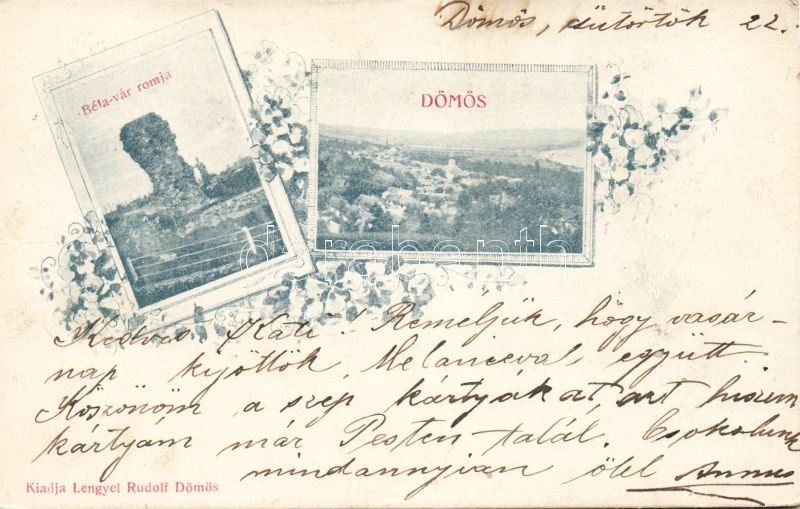 Dömös, csütörtök 22.
Béla-vár romja
DÖMÖS
darabanth
Kedves Kati! Reméljük, hogy vasár-
nap kijöttök, Melanieval együtt.
Köszönöm a szép kártyákat, azt hiszem
kártyám már Pesten talál. Csokolunk
mindannyian ölel Annus
Kiadja Lengyel Rudolf Dömös